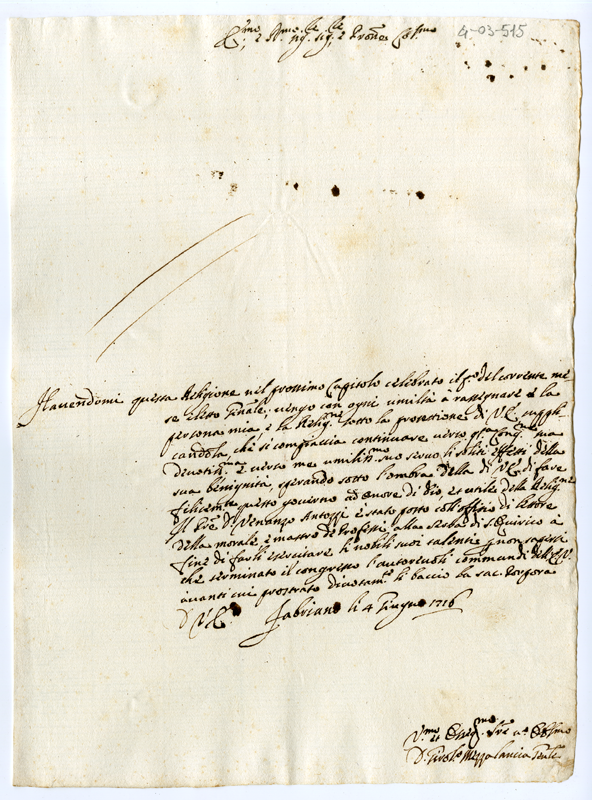 4-03-515
Em.mo e R.mo Sig. Sig. e Prone Col.mo
Havendomi questa Religione nel prossimo Capitolo celebrato il p.o del corrente me
se eletto Gn̄ale, vengo con ogni umiltà à rassegnare e la
persona mia e la Relig.ne sotto la protettione di V.E. suppli
candola, che si compiaccia continuare verso q.sta Cong.ne sua
devotis.ma e verso me umiliss.mo suo servo li soliti effetti della
sua benignità, sperando sotto l'ombra della di V.E. di fare
felicem.te questo governo ad onore di Dio, et utile della Relig.ne
Il Pre D. Venanzo Antozzi è stato posto coll'offizio di lettore
della morale e mastro de Professi, alla Scala di S. Quirico à
fine di farli esercitare li nobili suoi talenti e non
che terminato il congresso l'autorevoli commandi dell'E.V.
avanti cui prostrato divotam.te li bacio la sac. Porpora
D V.E. Fabriano li 4 Giugno 1716
V.mo et Osseq.mo Sre
D. Mezzalancia Gn̄le